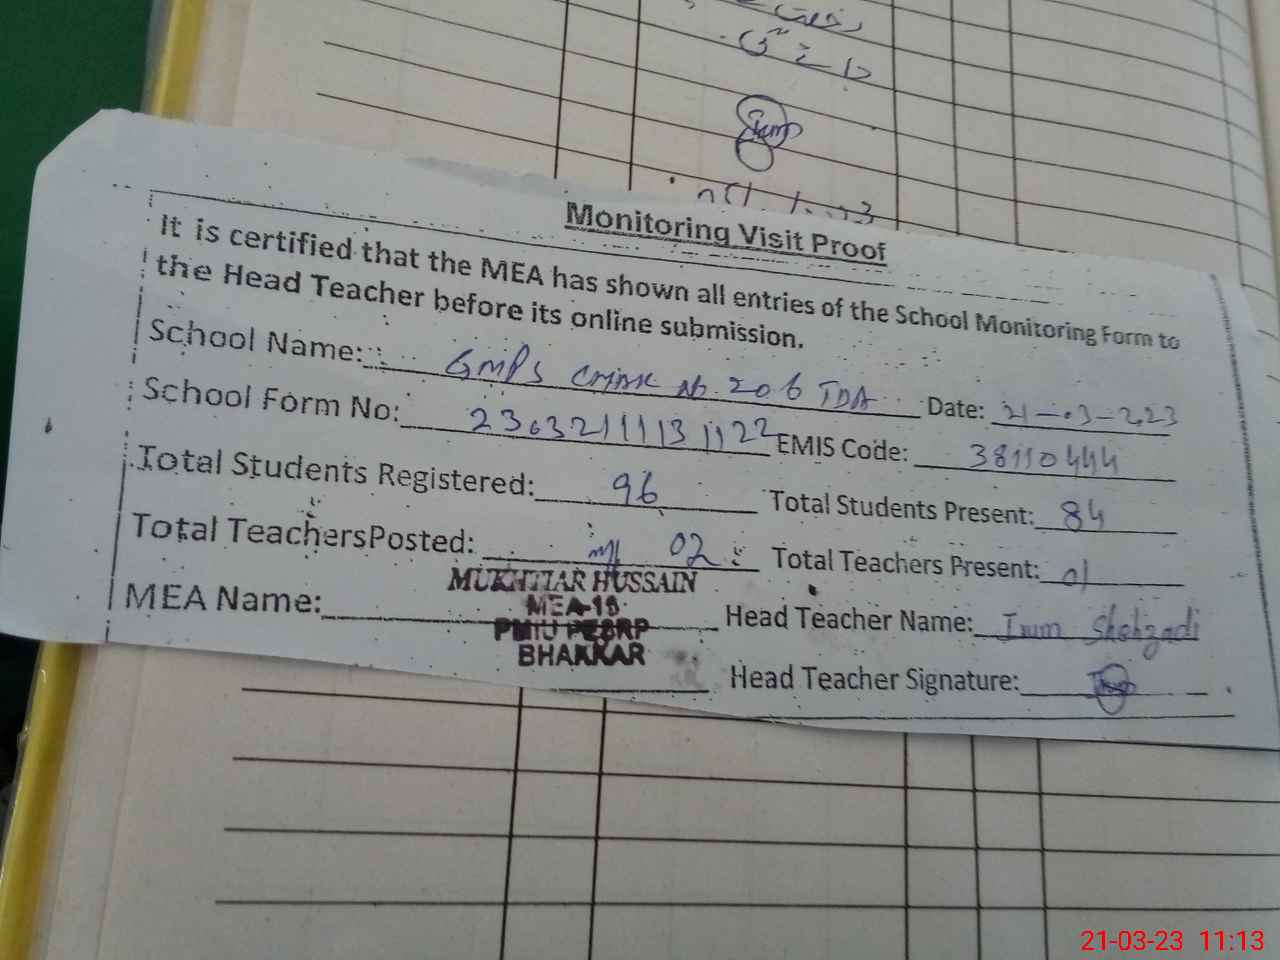 Monitoring Visit Proof
It is certified that the MEA has shown all entries of the School Monitoring Form to
the Head Teacher before its online submission.
School Name: GMPS No. 206 TDA Date: 21-03-2023
School Form No: 2303211113 1122 EMIS Code: 38110444
Total Students Registered: 96 Total Students Present: 84
Total TeachersPosted: 02 Total Teachers Present: 01
MUKHTIAR HUSSAIN
MEA-18
PMIU PESRP
BHAKKAR
MEA Name: Head Teacher Name: Irum Shehzadi
Head Teacher Signature:
21-03-23 11:13